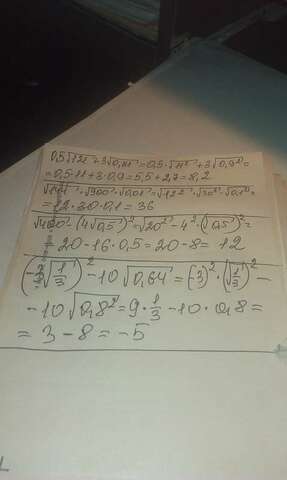 0,5√121 + 3√0,81 = 0,5·√11² + 3√0,9² =
= 0,5·11 + 3·0,9 = 5,5 + 2,7 = 8,2
√144·√900·√0,01 = √12²·√30²·√0,1² =
= 12·30·0,1 = 36
√400 - (4√0,5)² = √20² - 4²·(√0,5)² =
= 20 - 16·0,5 = 20 - 8 = 12
(-3√1/3)² - 10√0,64 = (-3)²·(√1/3)² -
- 10√0,8² = 9·1/3 - 10·0,8 =
= 3 - 8 = -5